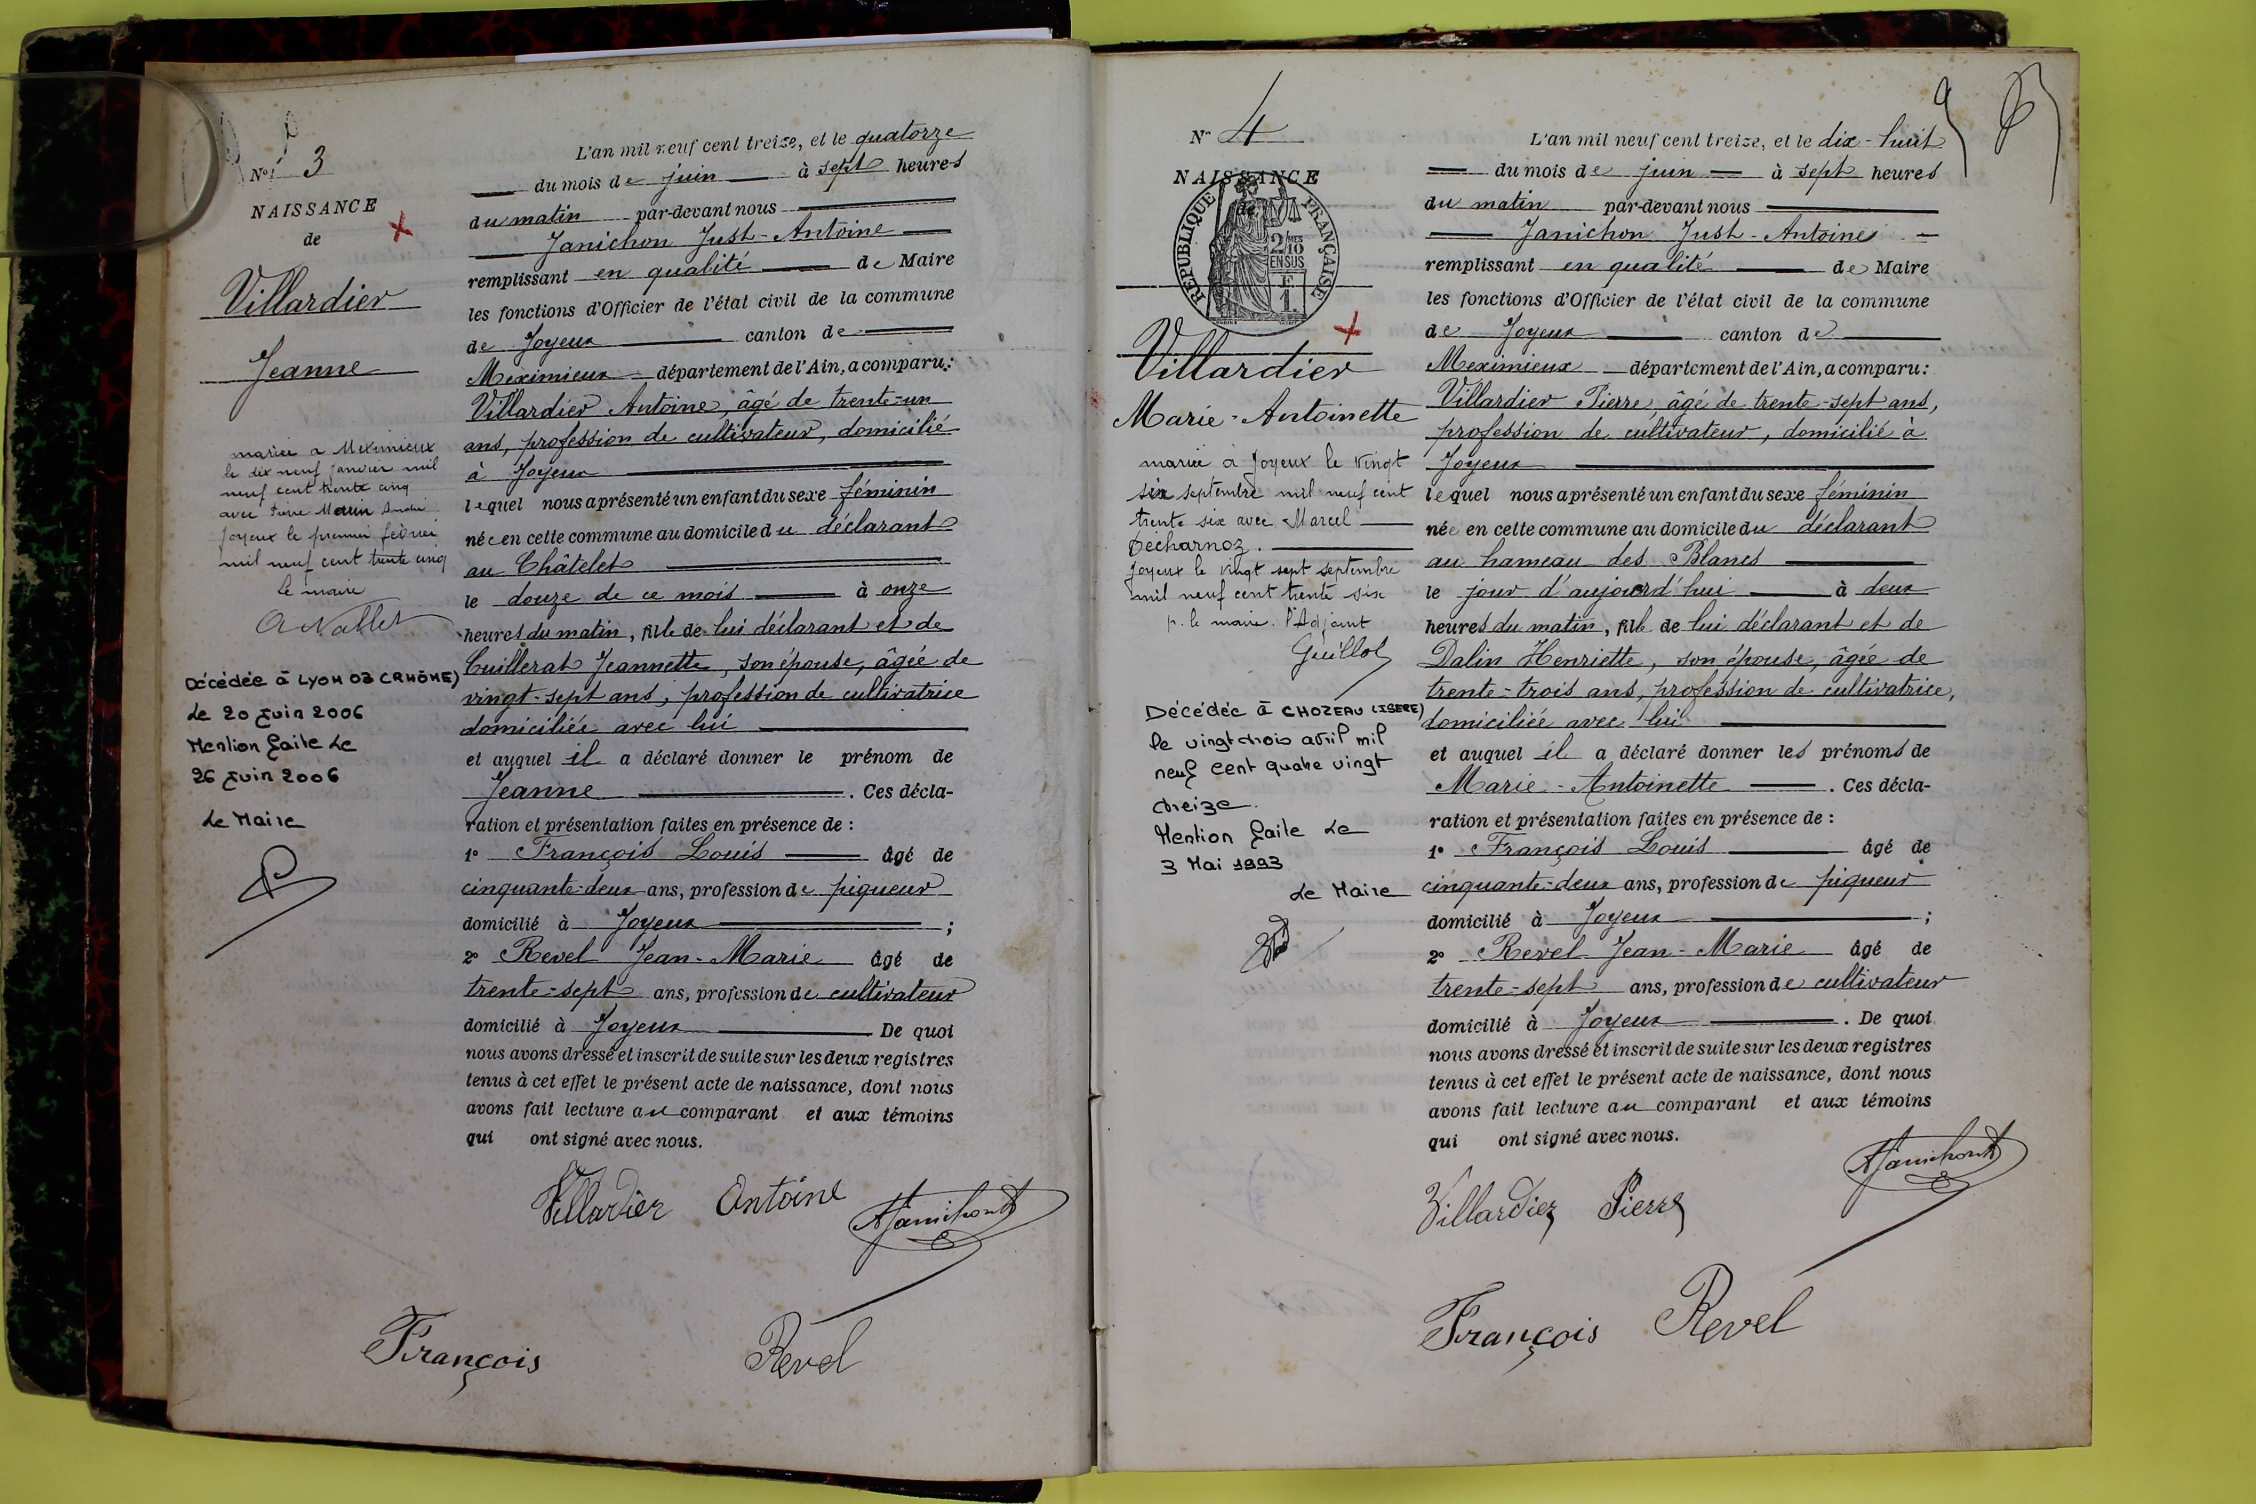 N° 3
NAISSANCE
de
Villardier
Jeanne
mariée a Meximieux
le dix neuf janvier mil
neuf cent trente cinq
avec Pierre Marin André
Joyeux le premier février
mil neuf cent trente cinq
le maire
Décédée à LYON 03 (RHÔNE)
Le 20 Juin 2006
Mention faite Le
26 Juin 2006
Le Maire
L'an mil neuf cent treize, et le quatorze
du mois de juin à sept heures
du matin par-devant nous
Janichon Just-Antoine
remplissant en qualité de Maire
les fonctions d'Officier de l'état civil de la commune
de Joyeux canton de
Meximieux département de l'Ain, a comparu:
Villardier Antoine, âgé de trente-un
ans, profession de cultivateur, domicilié
à Joyeux
lequel nous a présenté un enfant du sexe féminin
née en cette commune au domicile du déclarant
au Châtelet
le douze de ce mois à onze
heures du matin, fille de lui déclarant et de
Cuillerat Jeannette, son épouse, âgée de
vingt-sept ans, profession de cultivatrice
domiciliée avec lui
et auquel il a déclaré donner le prénom de
Jeanne. Ces décla-
ration et présentation faites en présence de :
1° François Louis âgé de
cinquante-deux ans, profession de piqueur
domicilié à Joyeux ;
2° Revel Jean-Marie âgé de
trente-sept ans, profession de cultivateur
domicilié à Joyeux De quoi
nous avons dressé et inscrit de suite sur les deux registres
tenus à cet effet le présent acte de naissance, dont nous
avons fait lecture au comparant et aux témoins
qui ont signé avec nous.
Villardier Antoine
AJanichon
François Revel
N° 4
NAISSANCE
de
RÉPUBLIQUE FRANÇAISE
2/10 EN SUS
F 1.
Villardier
Marie-Antoinette
mariée à Joyeux le vingt
six septembre mil neuf cent
trente six avec Marcel
Pécharnoz.
Joyeux le vingt sept septembre
mil neuf cent trente six
p. le maire. l'Adjoint
Guillot
Décédée à CHOZEAU (ISERE)
le vingt trois avril mil
neuf cent quatre vingt
treize.
Mention faite Le
3 Mai 1993
Le Maire
L'an mil neuf cent treize, et le dix-huit
du mois de juin à sept heures
du matin par-devant nous
Janichon Just-Antoine
remplissant en qualité de Maire
les fonctions d'Officier de l'état civil de la commune
de Joyeux canton de
Meximieux département de l'Ain, a comparu:
Villardier Pierre, âgé de trente-sept ans,
profession de cultivateur, domicilié à
Joyeux
lequel nous a présenté un enfant du sexe féminin
née en cette commune au domicile du déclarant
au hameau des Blancs
le jour d'aujourd'hui à deux
heures du matin, fille de lui déclarant et de
Dalin Henriette, son épouse, âgée de
trente-trois ans, profession de cultivatrice,
domiciliée avec lui
et auquel il a déclaré donner les prénoms de
Marie-Antoinette. Ces décla-
ration et présentation faites en présence de :
1° François Louis âgé de
cinquante-deux ans, profession de piqueur
domicilié à Joyeux ;
2° Revel Jean-Marie âgé de
trente-sept ans, profession de cultivateur
domicilié à Joyeux. De quoi
nous avons dressé et inscrit de suite sur les deux registres
tenus à cet effet le présent acte de naissance, dont nous
avons fait lecture au comparant et aux témoins
qui ont signé avec nous.
AJanichon
Villardier Pierre
François Revel